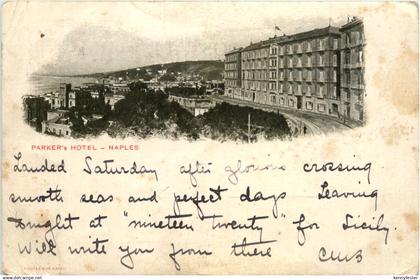 PARKER's HOTEL – NAPLES
Landed Saturday after glorious crossing
smooth seas and perfect days Leaving
tonight at "nineteen twenty" for Sicily.
Will write you from there